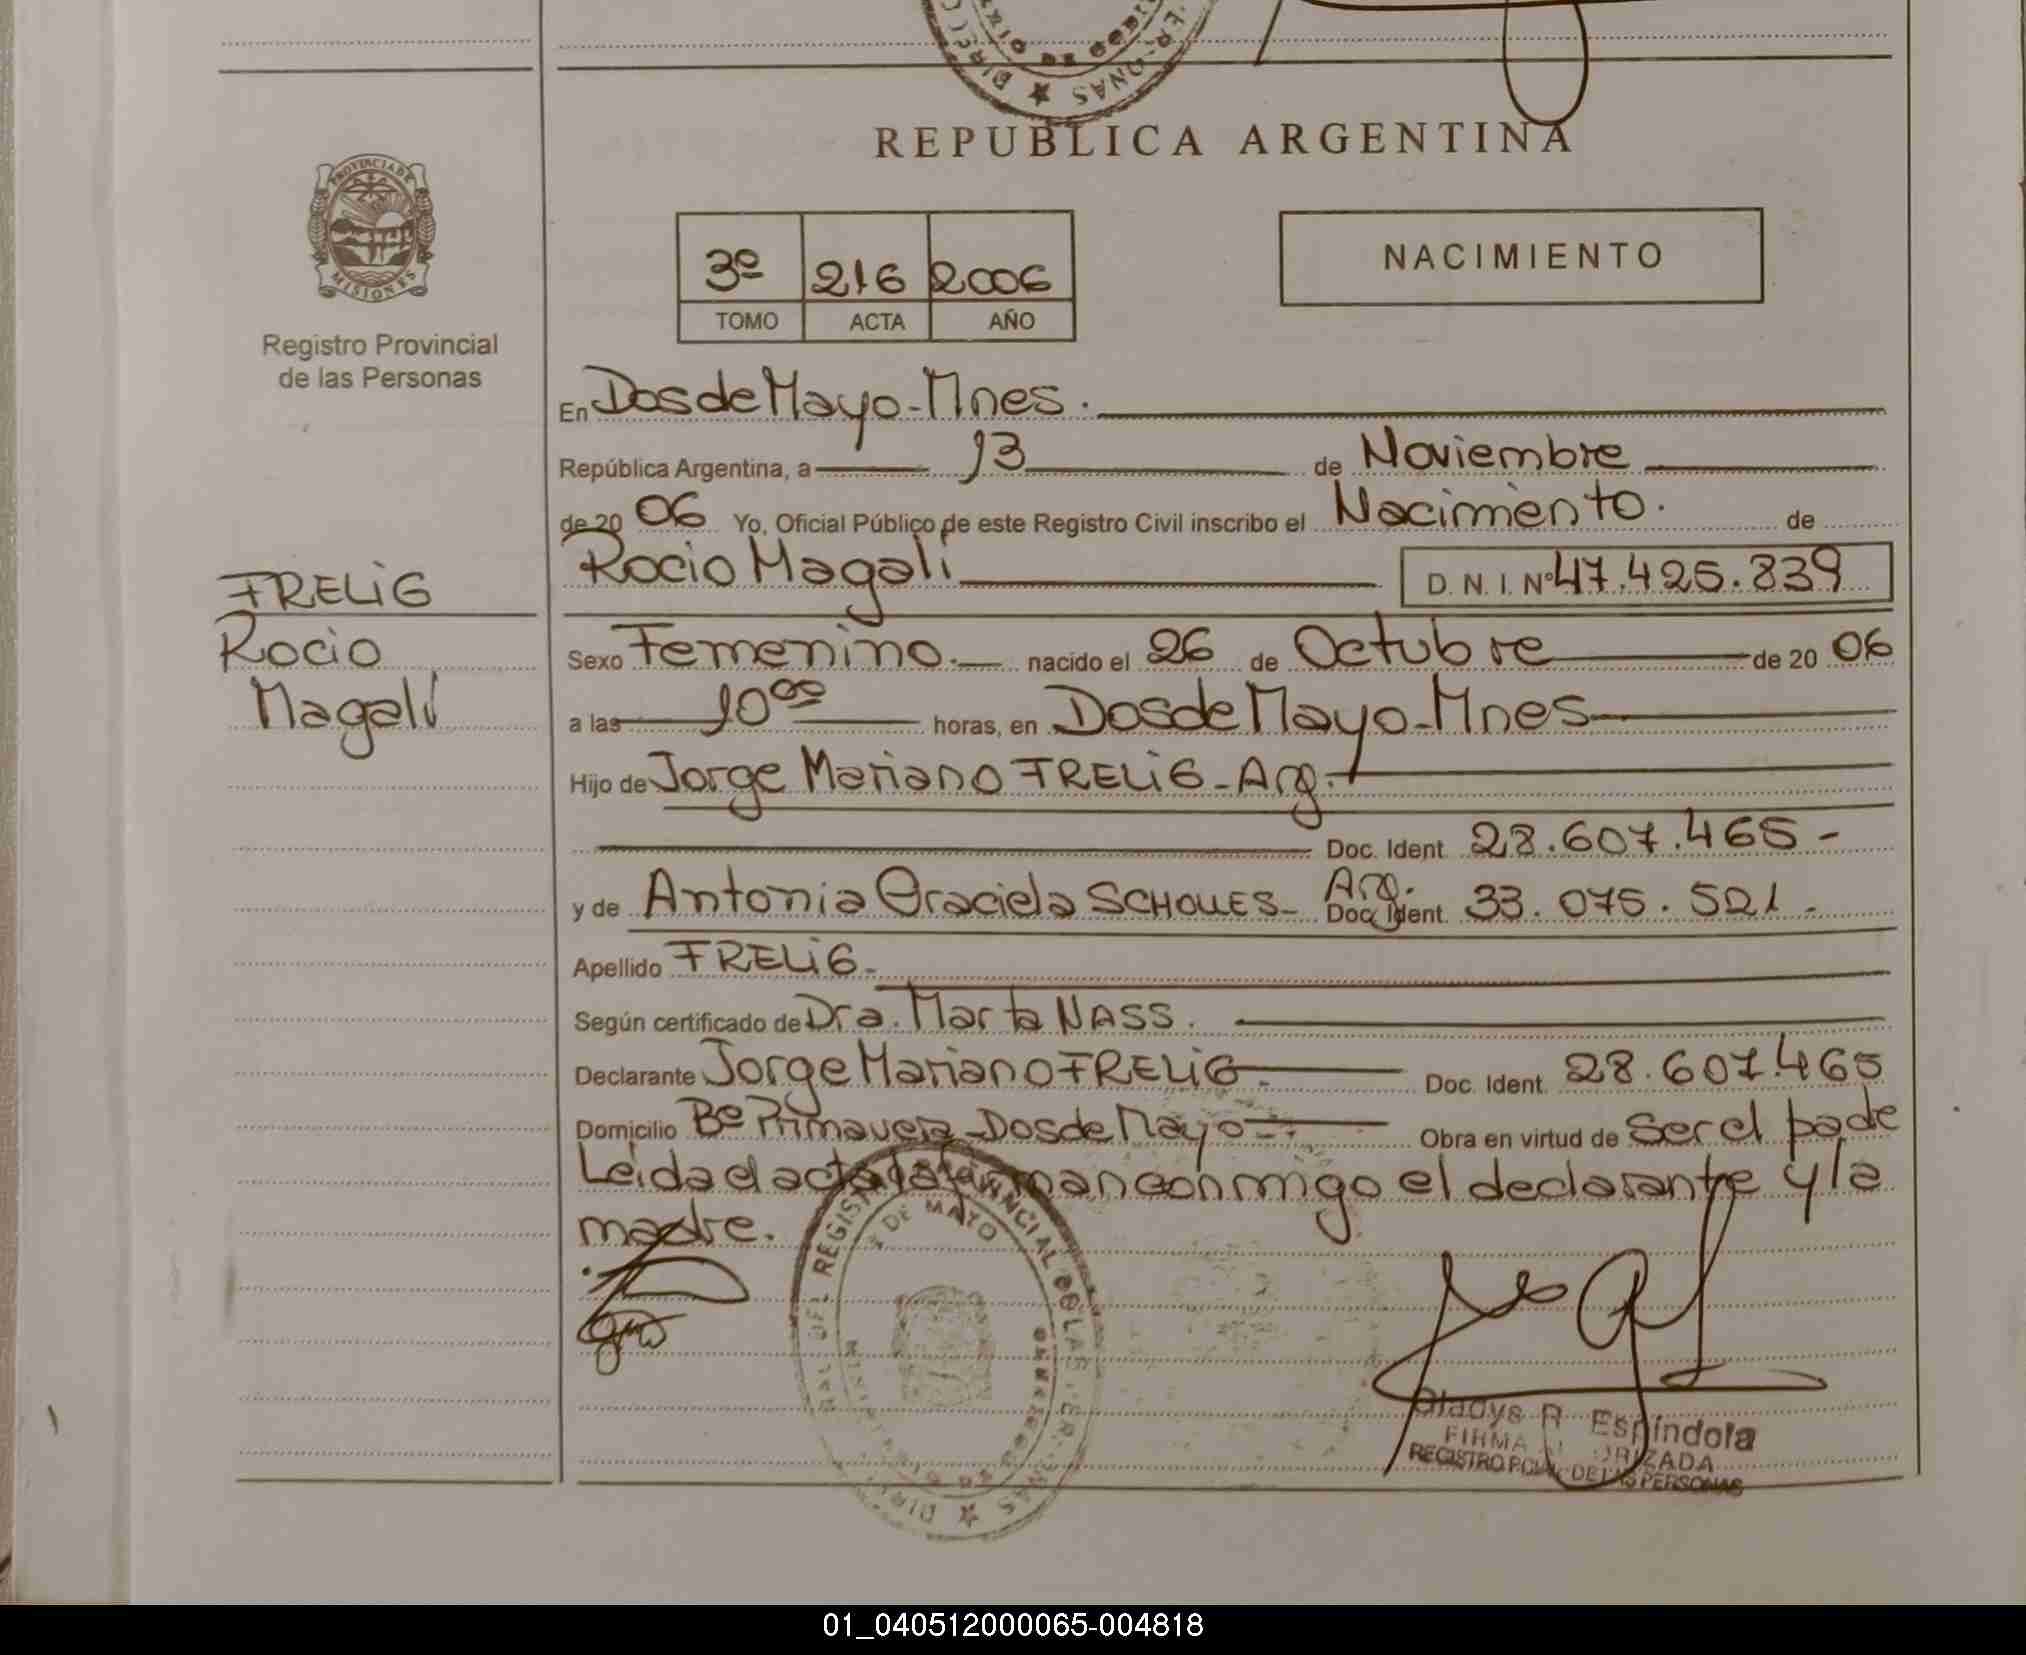 REPUBLICA ARGENTINA
PROVINCIA DE
MISIONES
Registro Provincial
de las Personas
3º 216 2006
TOMO ACTA AÑO
NACIMIENTO
En Dos de Mayo - Mnes.
República Argentina, a 13 de Noviembre
de 20 06 Yo, Oficial Público de este Registro Civil inscribo el Nacimiento. de
Rocio Magali D. N. I. Nº 47.425.839
FRELiG
Rocio
Magali
Sexo Femenino. nacido el 26 de Octubre de 20 06
a las 10 00 horas, en Dos de Mayo - Mnes
Hijo de Jorge Mariano FRELiG - Arg.
Doc. Ident. 28.607.465 -
y de Antonia Graciela SCHOLLES - Arg. Doc. Ident. 33.075.521 -
Apellido FRELiG -
Según certificado de Dra. Marta NASS.
Declarante Jorge Mariano FRELiG Doc. Ident. 28.607.465
Domicilio Bº Primavera - Dos de Mayo - Obra en virtud de Ser el padre
Leida el acta la firman conmigo el declarante y la
madre.
DE MAYO
Gladys R. Espindola
FIRMA AUTORIZADA
REGISTRO PCIAL. DE LAS PERSONAS
01_040512000065-004818